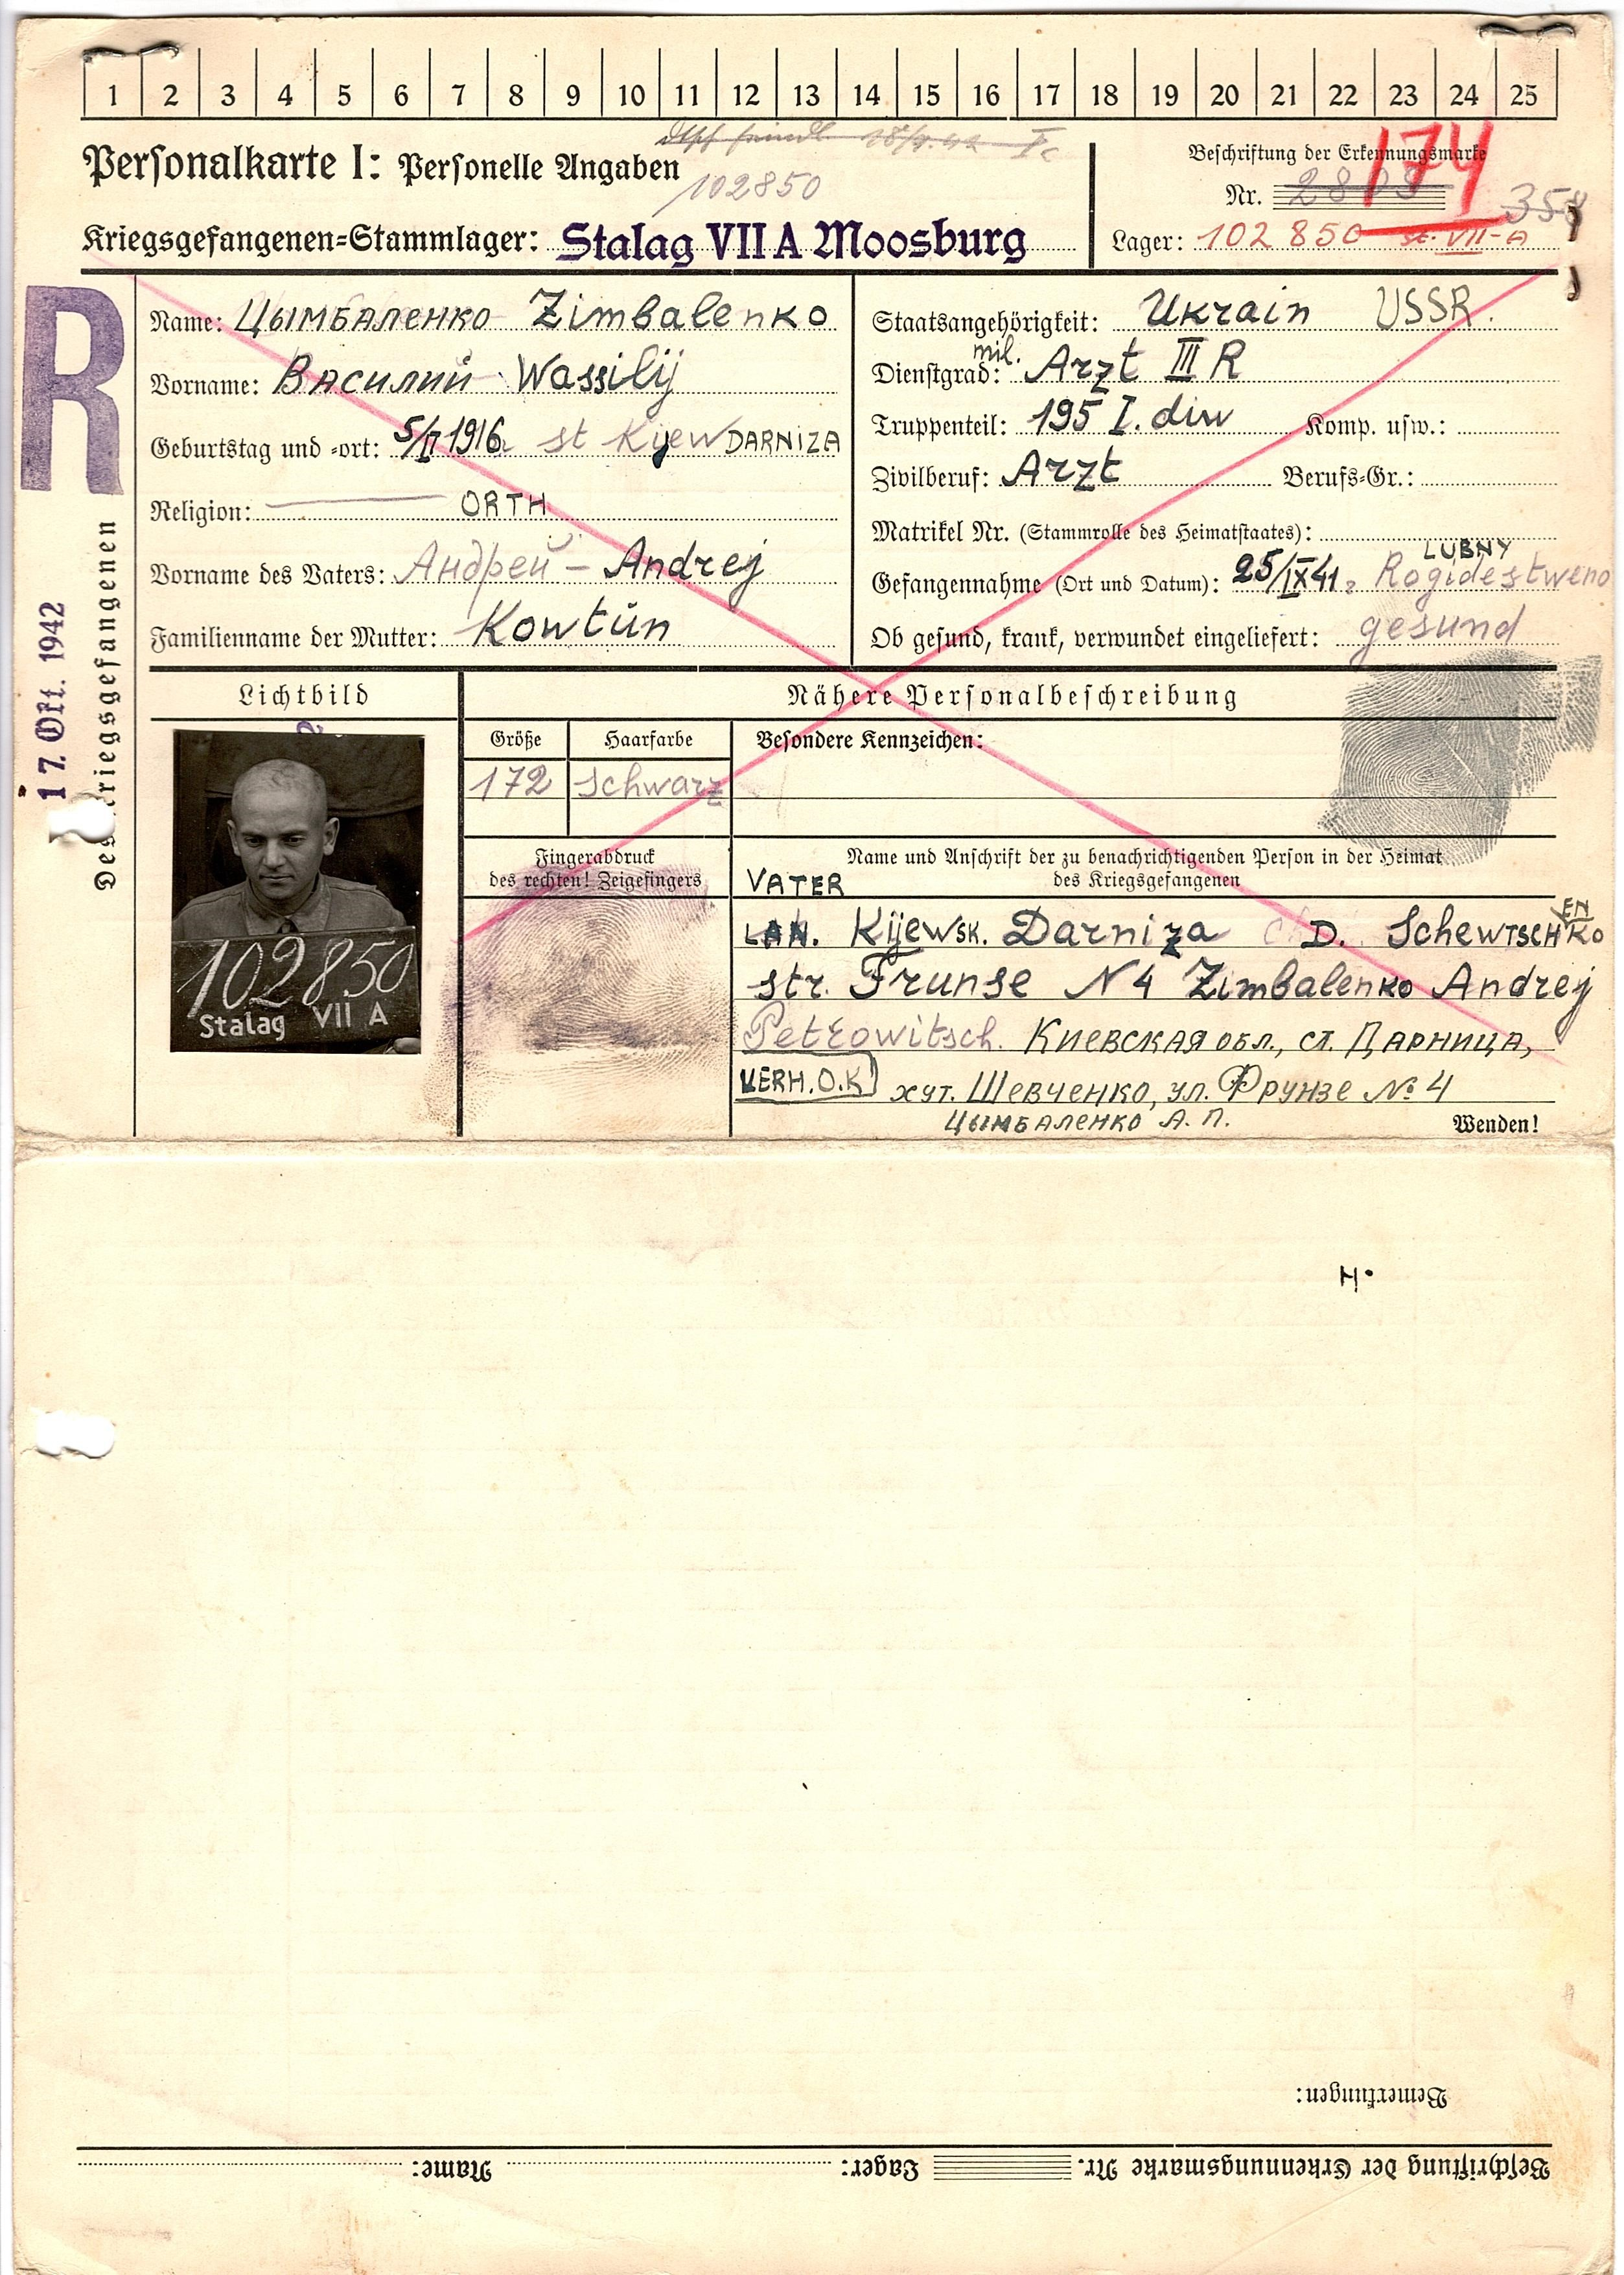 1 2 3 4 5 6 7 8 9 10 11 12 13 14 15 16 17 18 19 20 21 22 23 24 25
18/9.42
Personalkarte I: Personelle Angaben
102850
Beschriftung der Erkennungsmarke
174
Nr. 2803
358
Kriegsgefangenen=Stammlager: Stalag VII A Moosburg
Lager: 102 850 St. VII-A
R
Des Kriegsgefangenen
17. Okt. 1942
Name: Цымбаленко Zimbalenko
Vorname: Василий Wassilij
Geburtstag und =ort: 5/II 1916 st Kijew DARNIZA
Religion: ORTH
Vorname des Vaters: Андрей - Andrej
Familienname der Mutter: Kowtun
Staatsangehörigkeit: Ukrain USSR.
mil.
Dienstgrad: Arzt III R
Truppenteil: 195 I. diw Komp. usw.:
Zivilberuf: Arzt Berufs=Gr.:
Matrikel Nr. (Stammrolle des Heimatstaates):
LUBNY
Gefangennahme (Ort und Datum): 25/IX 41. Rogidestweno
Ob gesund, krank, verwundet eingeliefert: gesund
Lichtbild
Nähere Personalbeschreibung
Größe Haarfarbe
172 schwarz
Besondere Kennzeichen:
102850
Stalag VII A
Fingerabdruck
des rechten! Zeigefingers
Name und Anschrift der zu benachrichtigenden Person in der Heimat
des Kriegsgefangenen
VATER
LAN. Kijewsk. Darniza D. SchewtschENko
str. Frunse N 4 Zimbalenko Andrej
Petrowitsch. Киевская обл., ст. Дарница,
VERH. O.K. хут. Шевченко, ул. Фрунзе № 4
Цымбаленко А. П.
Wenden!
H.
Bemerkungen:
Beschriftung der Erkennungsmarke Nr. Lager: Name: